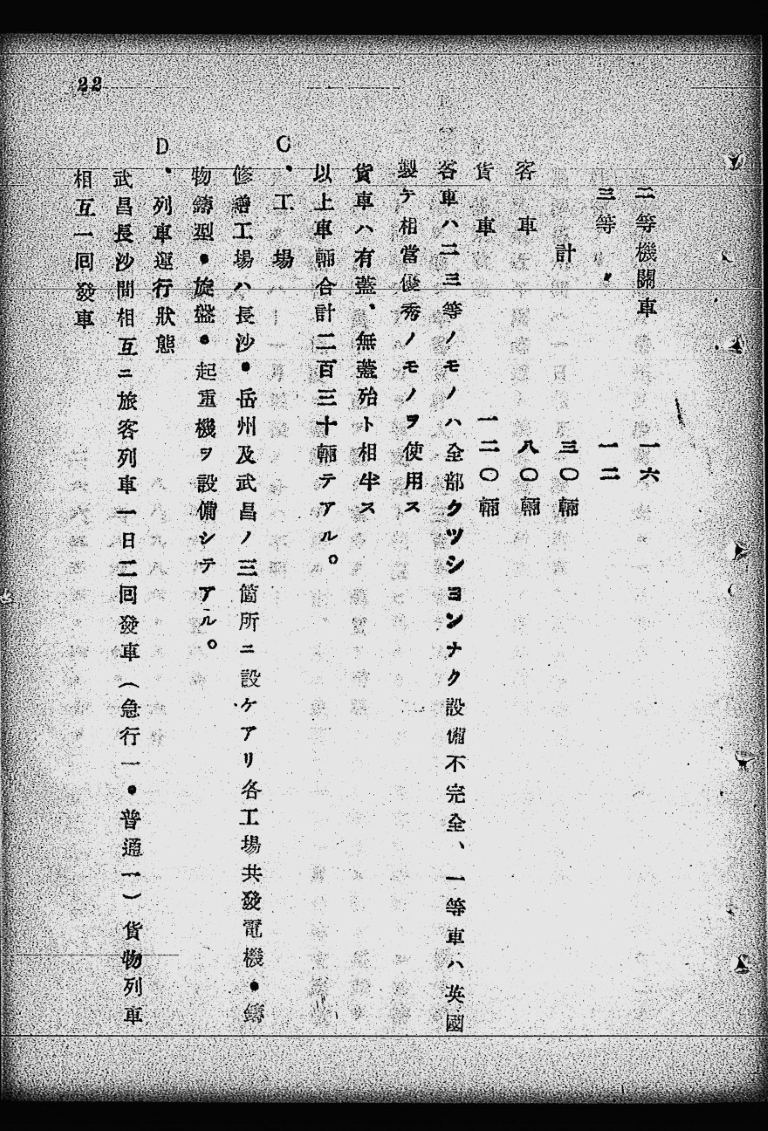 22
二等機關車　一六
三等〃　一二
計　三〇輛
客車　八〇輛
貨車　一二〇輛
客車ハ二三等ノモノハ全部クツシヨンナク設備不完全、一等車ハ英國
製ケ相當優秀ノモノヲ使用ス
貨車ハ有蓋、無蓋殆ト相半ス
以上車輛合計二百三十輛テアル。
C、工場
修繕工場ハ長沙・岳州及武昌ノ三箇所ニ設ケアリ各工場共發電機・鑄
物鑄型・旋盤・起重機ヲ設備シテアル。
D、列車運行狀態
武昌長沙間相互ニ旅客列車一日二回發車（急行一・普通一）貨物列車
相互一回發車